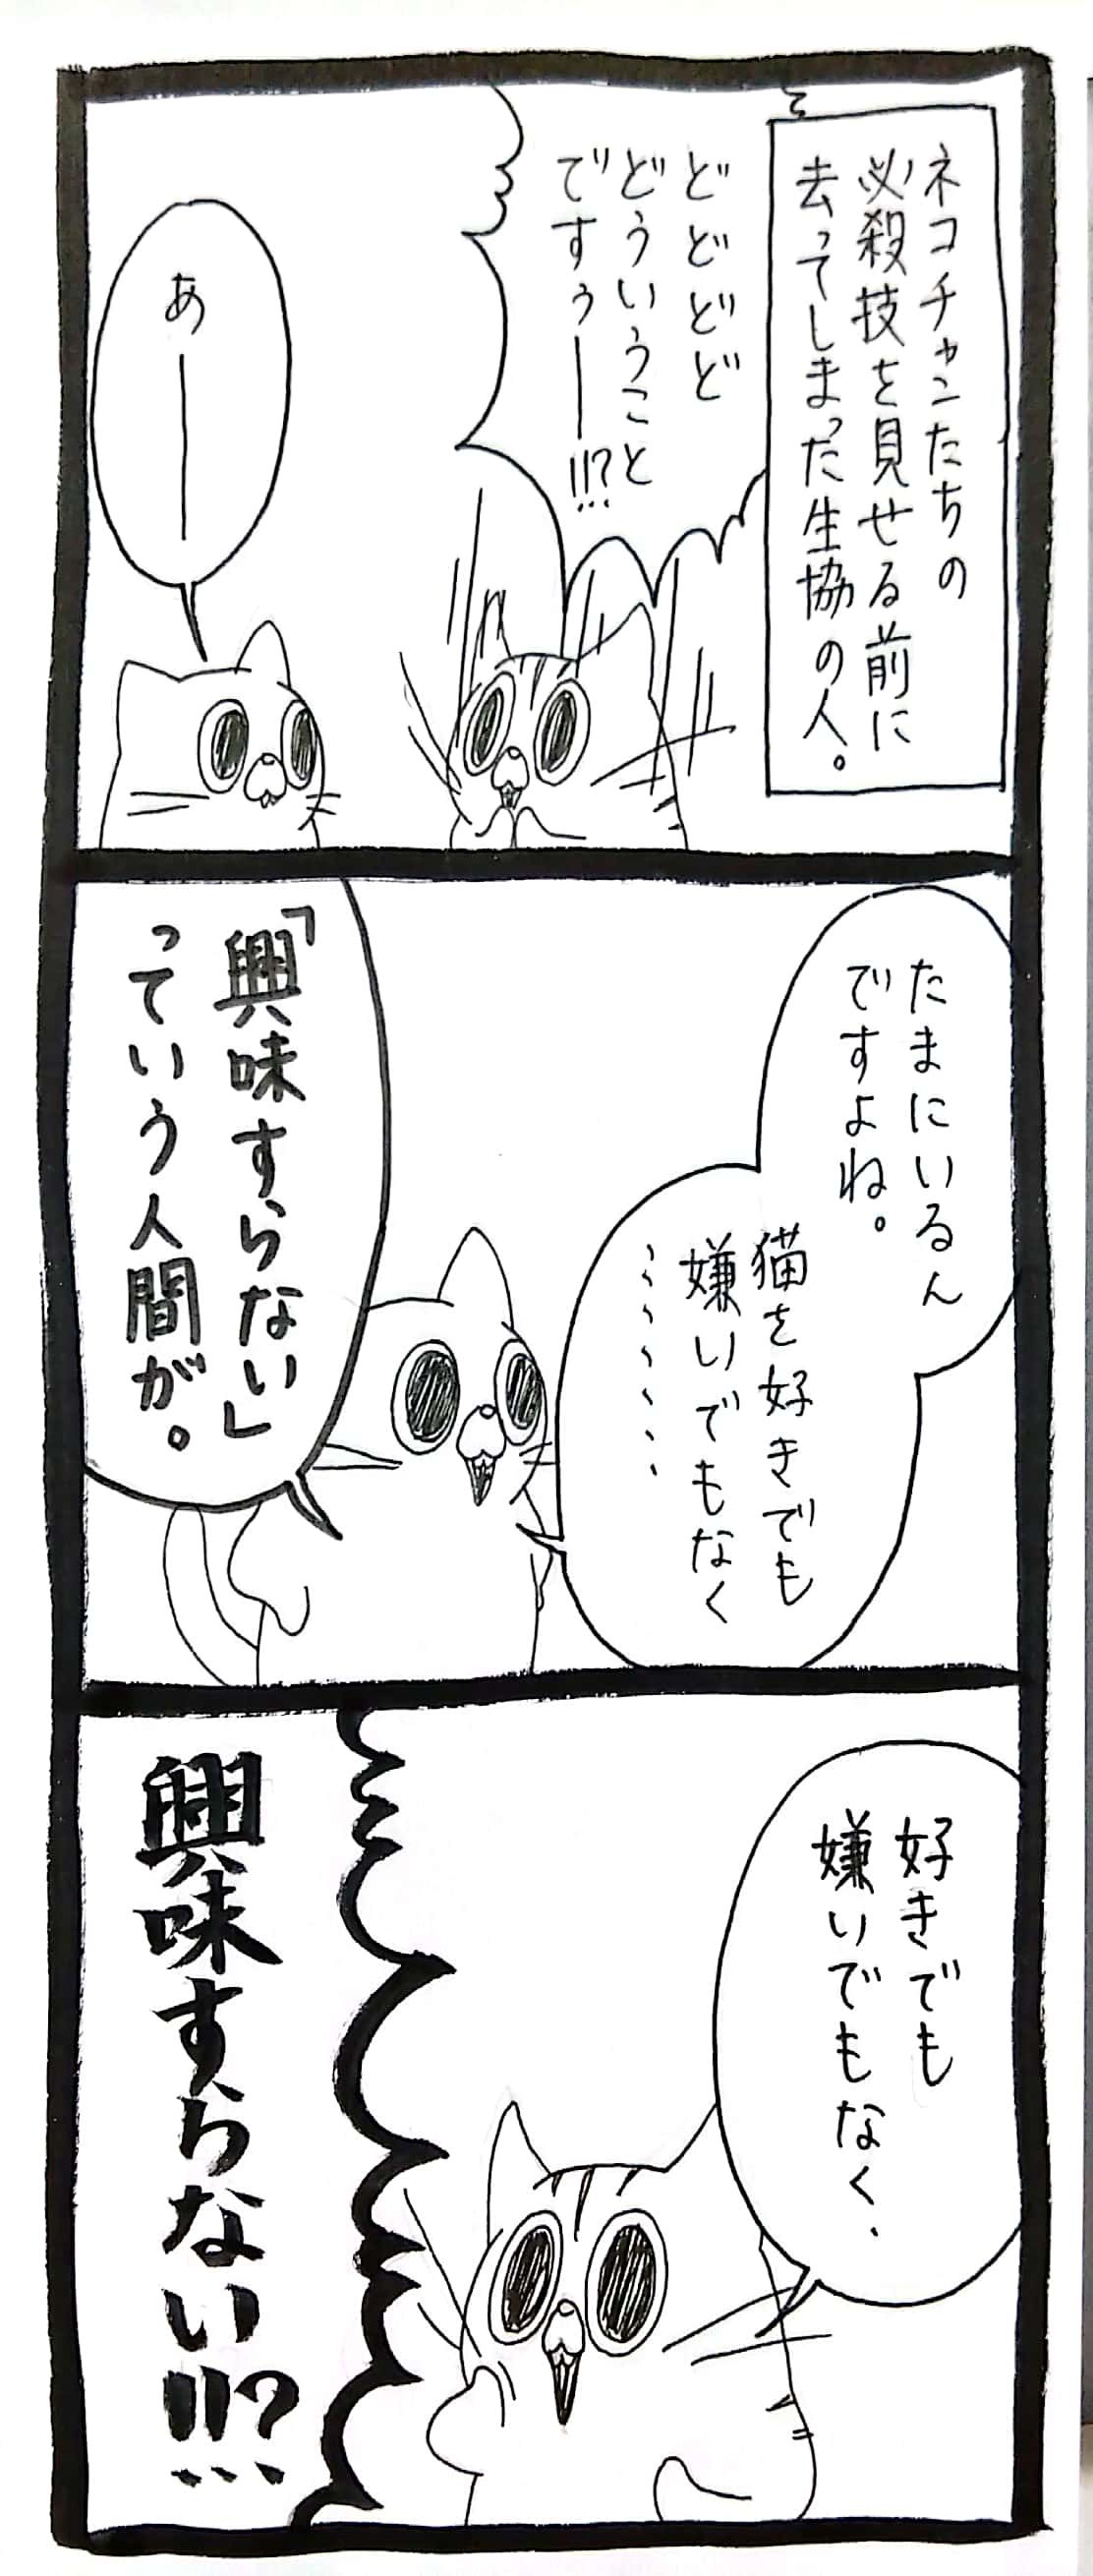 ネコチャンたちの
必殺技を見せる前に
去ってしまった生協の人。
どどどど
どういうこと
ですぅー!!?
あー
たまにいるん
ですよね。
猫を好きでも
嫌いでもなく
、、、、、、
「興味すらない」
っていう人間が。
好きでも
嫌いでもなく、
興味すらない!!?